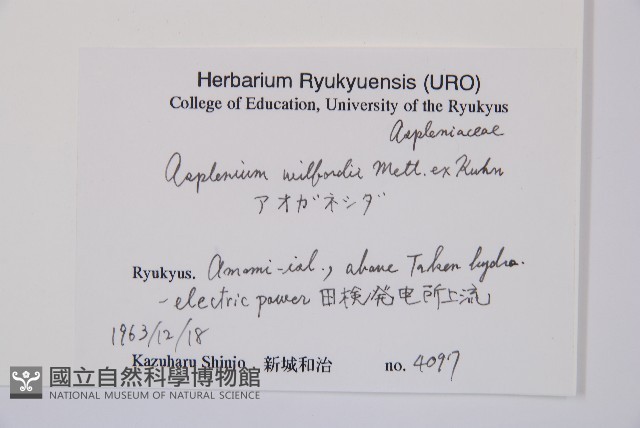 Herbarium Ryukyuensis (URO)
College of Education, University of the Ryukyus
Aspleniaceae
Asplenium wilfordii Mett. ex Kuhn
アオガネシダ
Ryukyus. Amami-isl., above Taken hydro.
-electric power 田検発電所上流
1963/12/18
Kazuharu Shinjo 新城和治 no. 4097
國立自然科學博物館
NATIONAL MUSEUM OF NATURAL SCIENCE